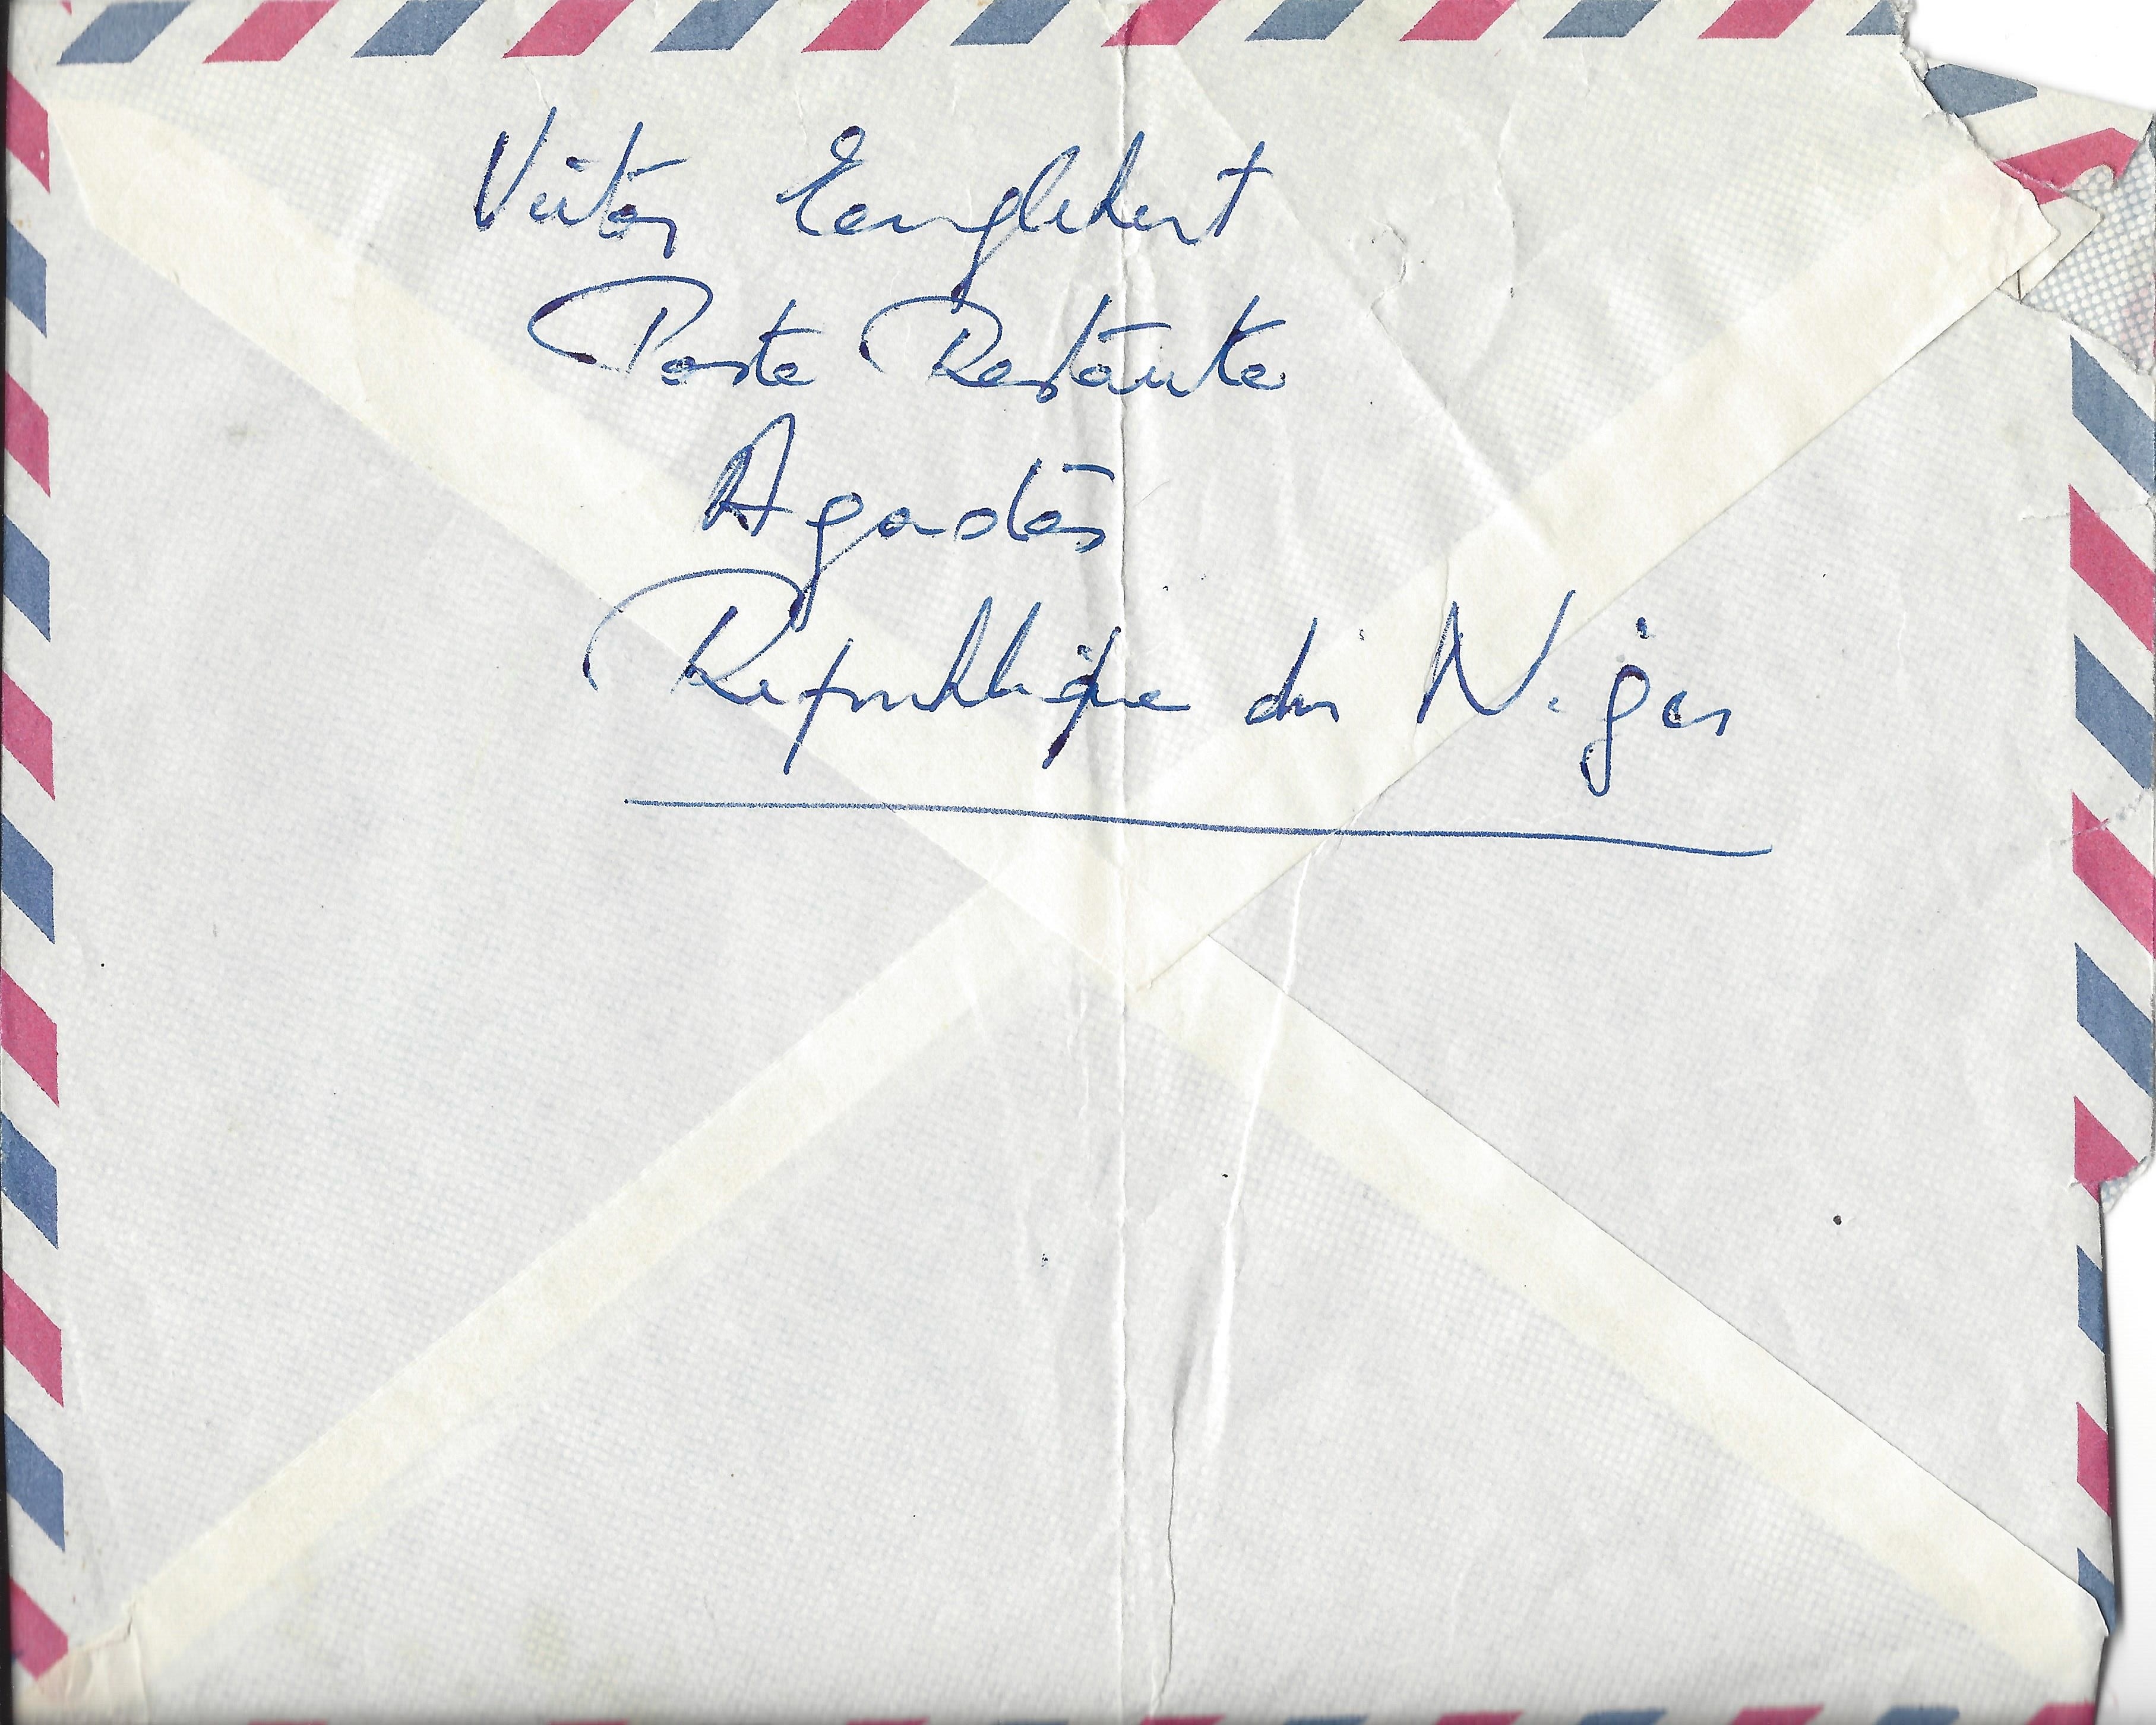 Victor Englebert
Poste Restante
Agadès
République du Niger